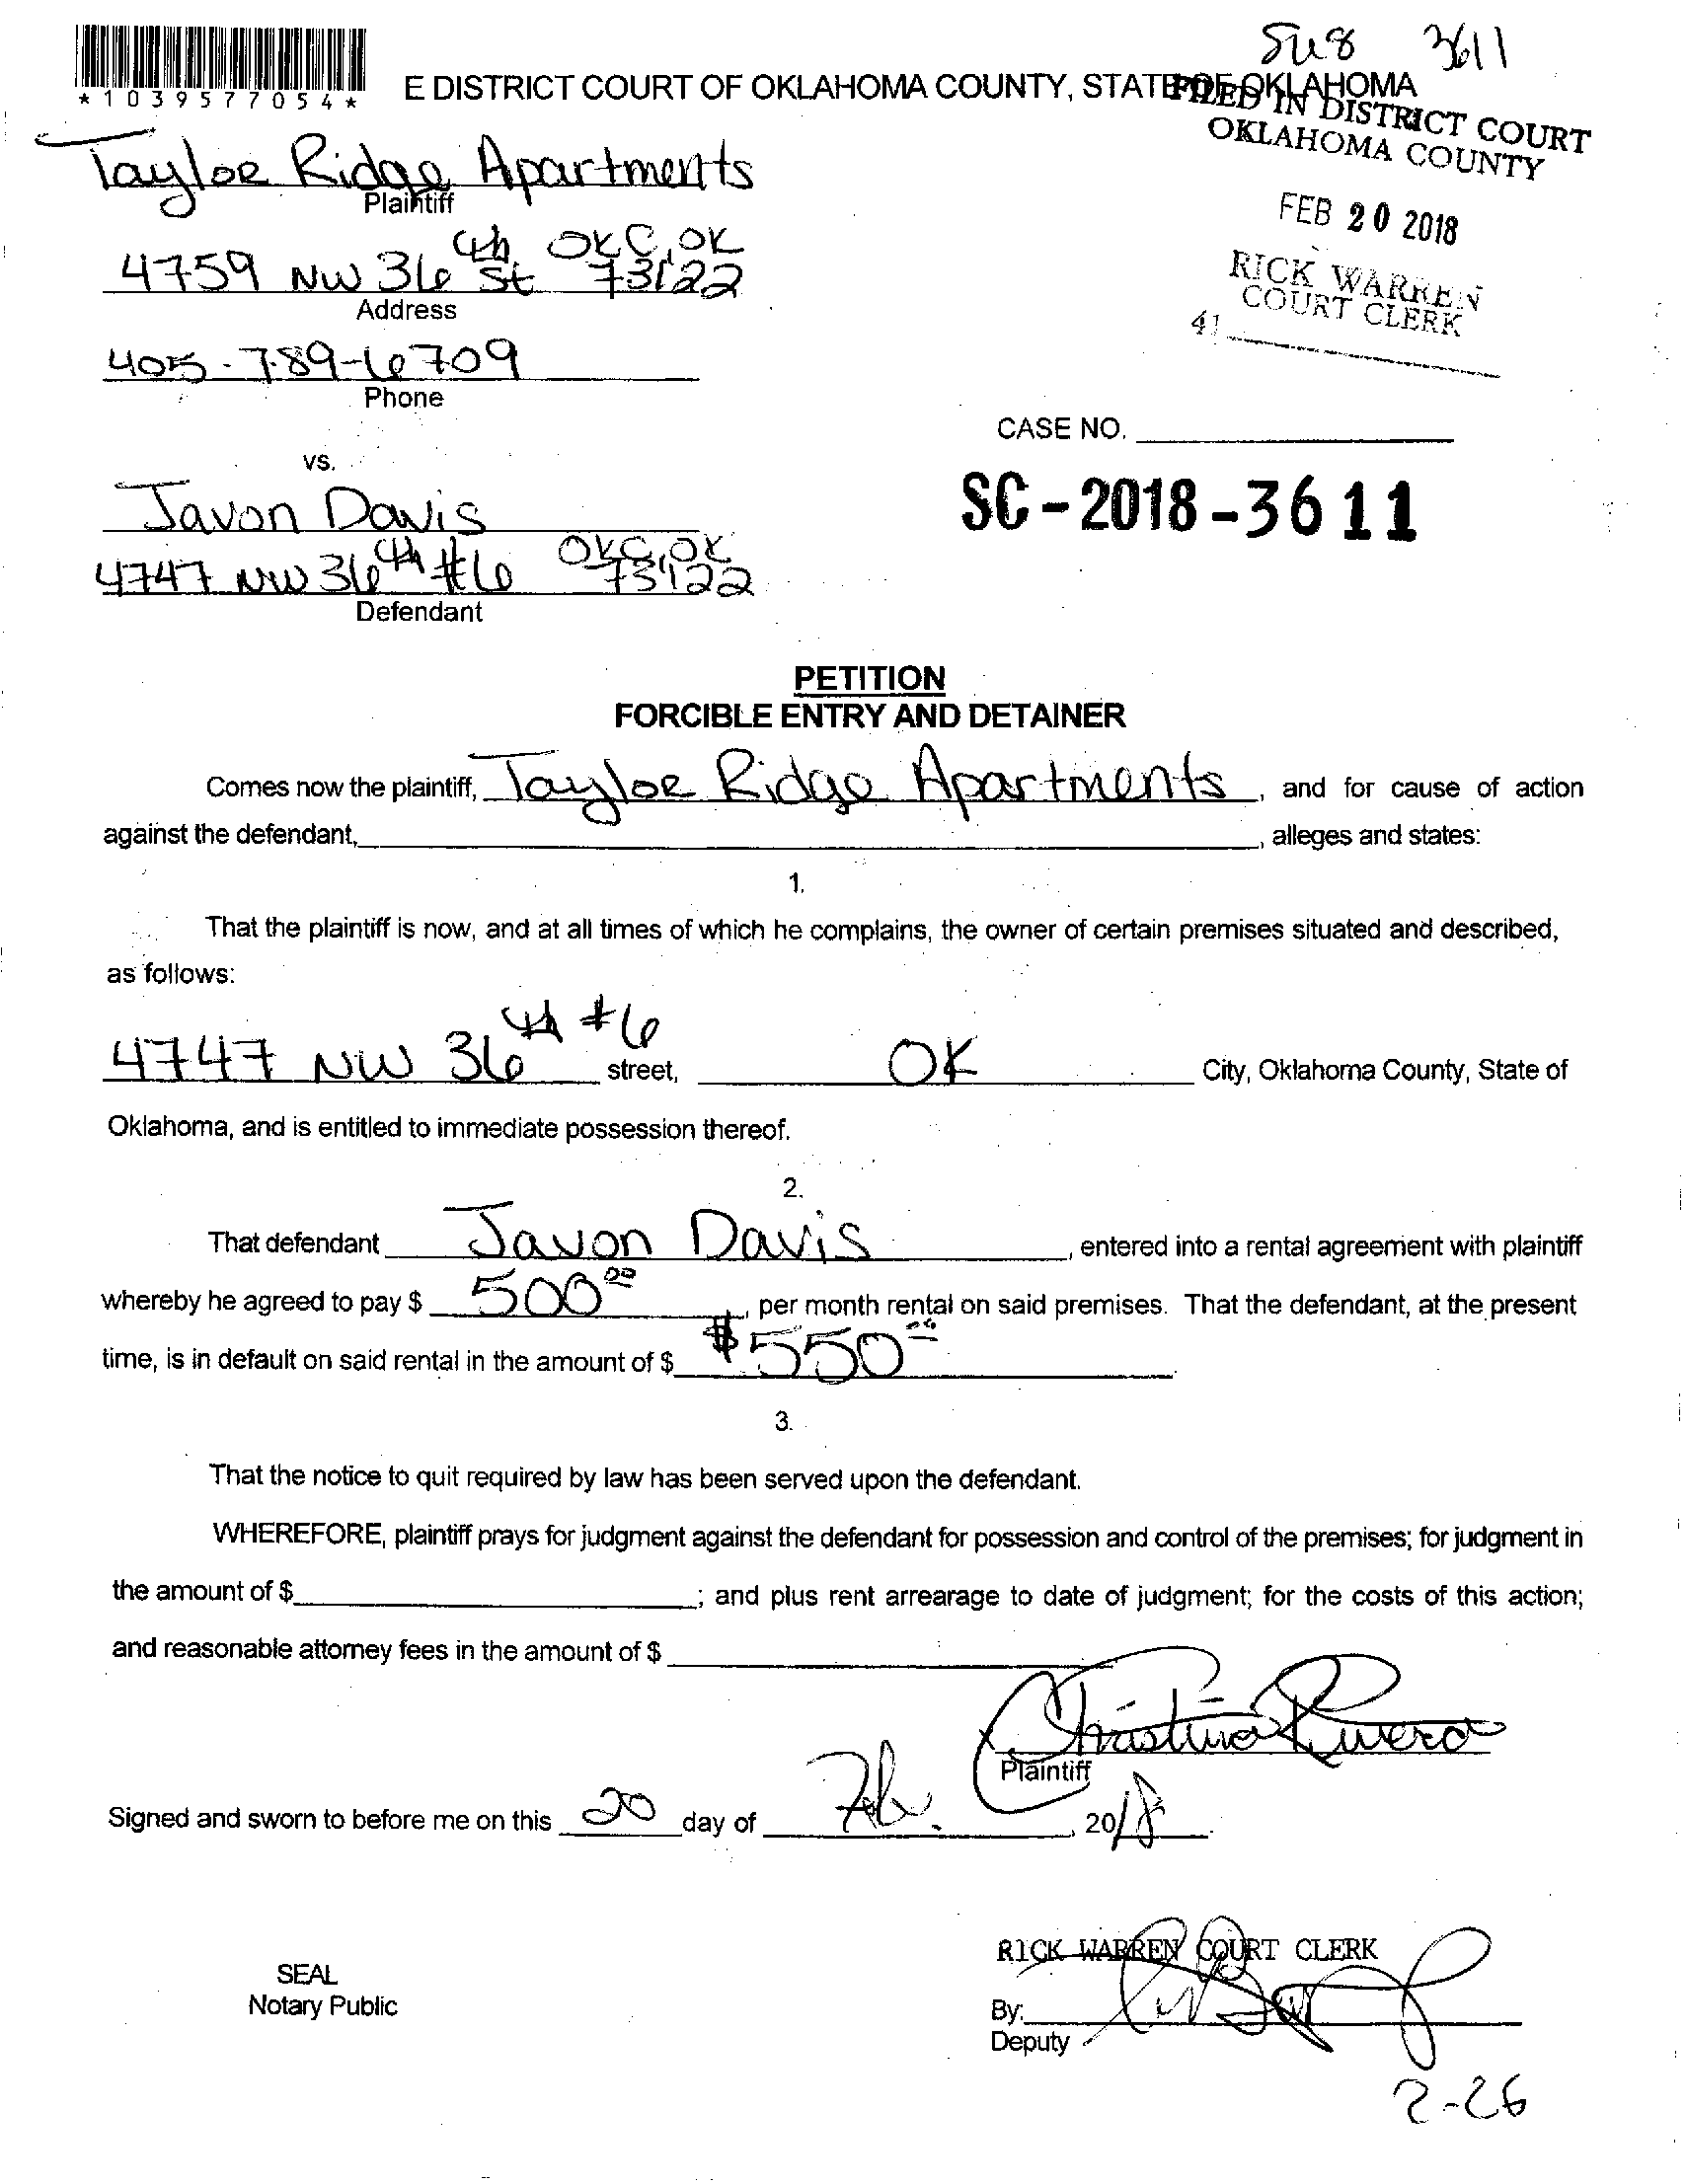 SU8 3611
*1039577054*
E DISTRICT COURT OF OKLAHOMA COUNTY, STATE OF OKLAHOMA
FILED IN DISTRICT COURT
OKLAHOMA COUNTY
FEB 20 2018
RICK WARREN
COURT CLERK
41
Tayloe Ridge Apartments
Plaintiff
4759 NW 36th St OKC, OK 73122
Address
405-789-6709
Phone
CASE NO.
vs.
SC-2018-3611
Javon Davis
4747 NW 36th #6 OKC, OK 73122
Defendant
PETITION
FORCIBLE ENTRY AND DETAINER
Comes now the plaintiff, Tayloe Ridge Apartments, and for cause of action
against the defendant, , alleges and states:
1.
That the plaintiff is now, and at all times of which he complains, the owner of certain premises situated and described,
as follows:
4747 NW 36th #6 street, OK City, Oklahoma County, State of
Oklahoma, and is entitled to immediate possession thereof.
2.
That defendant Javon Davis, entered into a rental agreement with plaintiff
whereby he agreed to pay $ 500 00, per month rental on said premises. That the defendant, at the present
time, is in default on said rental in the amount of $ $550 00
3.
That the notice to quit required by law has been served upon the defendant.
WHEREFORE, plaintiff prays for judgment against the defendant for possession and control of the premises; for judgment in
the amount of $ ; and plus rent arrearage to date of judgment; for the costs of this action;
and reasonable attorney fees in the amount of $
x Christina Rivera
Plaintiff
Signed and sworn to before me on this 20 day of Feb., 2018
RICK WARREN COURT CLERK
SEAL
Notary Public
By:
Deputy
2-26